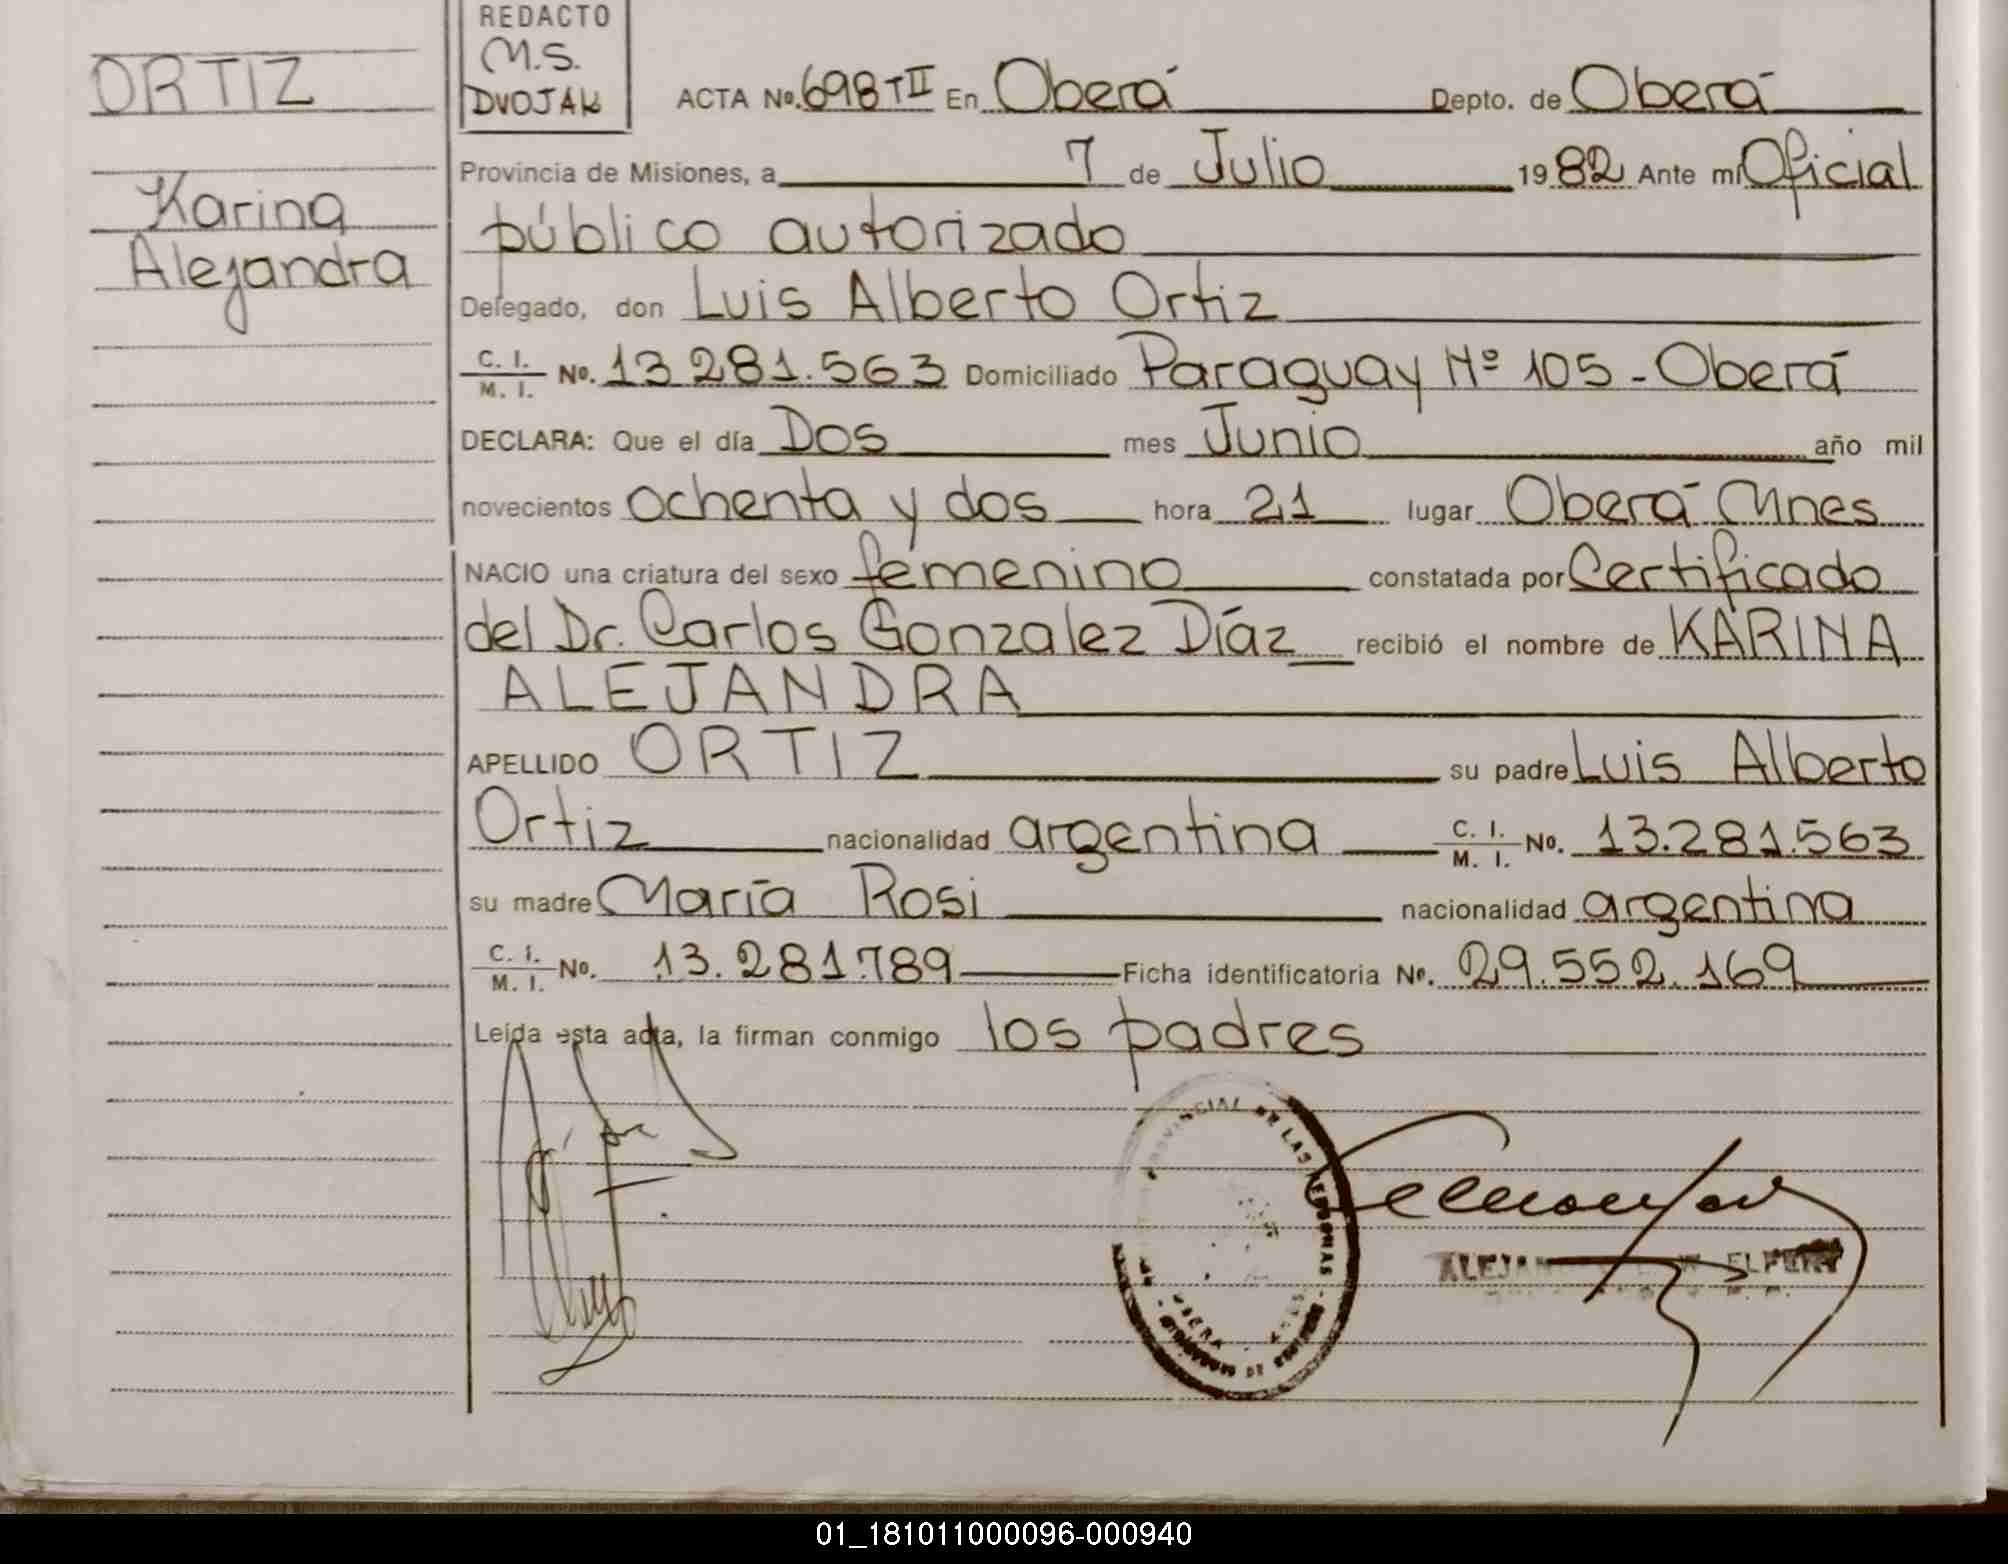 ORTIZ
Karina
Alejandra
REDACTO
M.S.
DVOJAK
ACTA Nº. 698 T II En Oberá Depto. de Oberá
Provincia de Misiones, a 7 de Julio 1982 Ante mí Oficial
público autorizado
Delegado, don Luis Alberto Ortiz
C. I. / M. I. Nº. 13 281.563 Domiciliado Paraguay Nº 105 - Oberá
DECLARA: Que el día Dos mes Junio año mil
novecientos ochenta y dos hora 21 lugar Oberá Mnes
NACIO una criatura del sexo femenino constatada por Certificado
del Dr. Carlos Gonzalez Díaz recibió el nombre de KARINA
ALEJANDRA
APELLIDO ORTIZ su padre Luis Alberto
Ortiz nacionalidad argentina C. I. / M. I. Nº. 13.281.563
su madre María Rosi nacionalidad argentina
C. I. / M. I. Nº. 13.281.789 Ficha identificatoria Nº. 29.552.169
Leída esta acta, la firman conmigo los padres
PROVINCIAL DE LAS PERSONAS
OBERA
ALEJAN
01_181011000096-000940